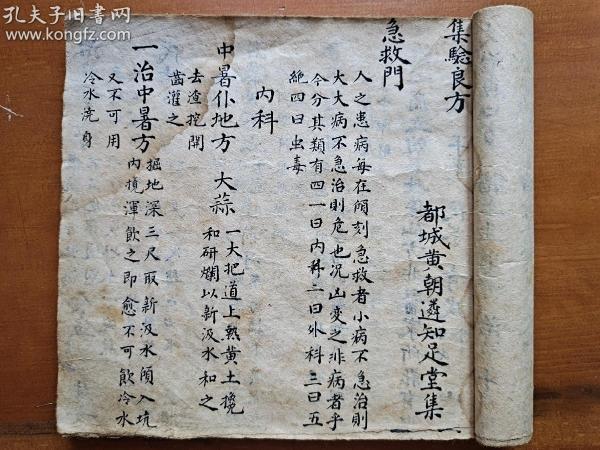 孔夫子旧书网
www.kongfz.com
集驗良方
都城黄朝遴知足堂集
急救門
人之患病每在傾刻急救者小病不急治則
大大病不急治則危也况凶变之非病者乎
今分其類有四一曰内科二曰外科三曰五
絶四曰虫毒
内科
中暑仆地方
大蒜
一大把道上熱黄土攙
和研爛以新汲水和之
去渣挖開
齒灌之
一治中暑方
掘地深三尺取新汲水傾入坑
内攪渾飲之即愈不可飲冷水
又不可用
冷水澆身